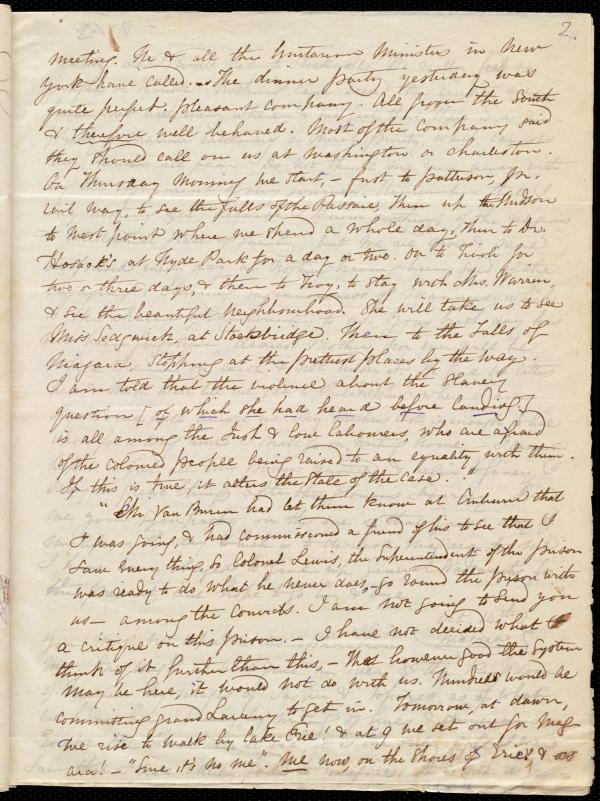 2.
meeting. He & all the Unitarian Ministers in New
York have called. – The dinner party yesterday was
quite perfect. pleasant company. All from the South
& therefore well behaved. Most of the company said
they should call on us at Washington or Charleston.
On Thursday morning we start, – first to Patterson, Jn.
rail way, to see the falls of the Passaic, then up the Hudson
to West point where we spend a whole day, then to Dr.
Hosack's at Hyde Park for a day or two. On to Tivoli for
two or three days, & then to Troy, to stay with Mrs. Warren,
& see the beautiful neighbourhood. She will take us to see
Miss Sedgwick, at Stockbridge. Then to the Falls of
Niagara, stopping at the prettiest places by the way.
I am told that the violence about the Slavery
question [of which she had heard before landing]
is all among the Irish & low labourers, who are afraid
of the colored people being raised to an equality with them.
If this is true, it alters the state of the case."
"Mr Van Buren had let them know at Auburn that
I was going, & had commissioned a friend of his to see that I
saw everything, so Colonel Lewis, the Superintendent of the prison
was ready to do, what he never does, – go round the prison with
us – among the convicts. I am not going to send you
a critique on this prison. – I have not decided what to
think of it further than this, – that however good the System
may be here, it would not do with us. Hundreds would be
committing grand Larceny to get in. Tomorrow, at dawn,
we rise to walk by Lake Erie! & at 9 we set out for Niag
ara! – "Sure it's no me". Me now, on the shores of Erie! & as